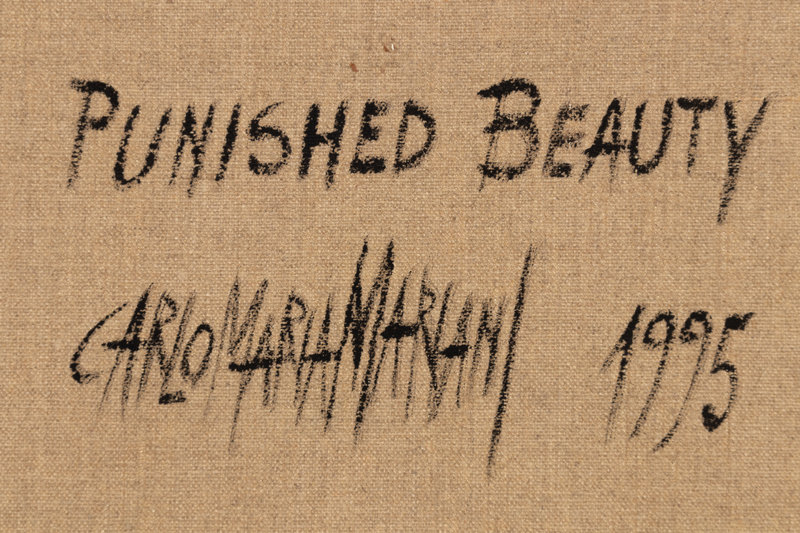 PUNISHED BEAUTY
CARLO MARIA MARIANI 1995